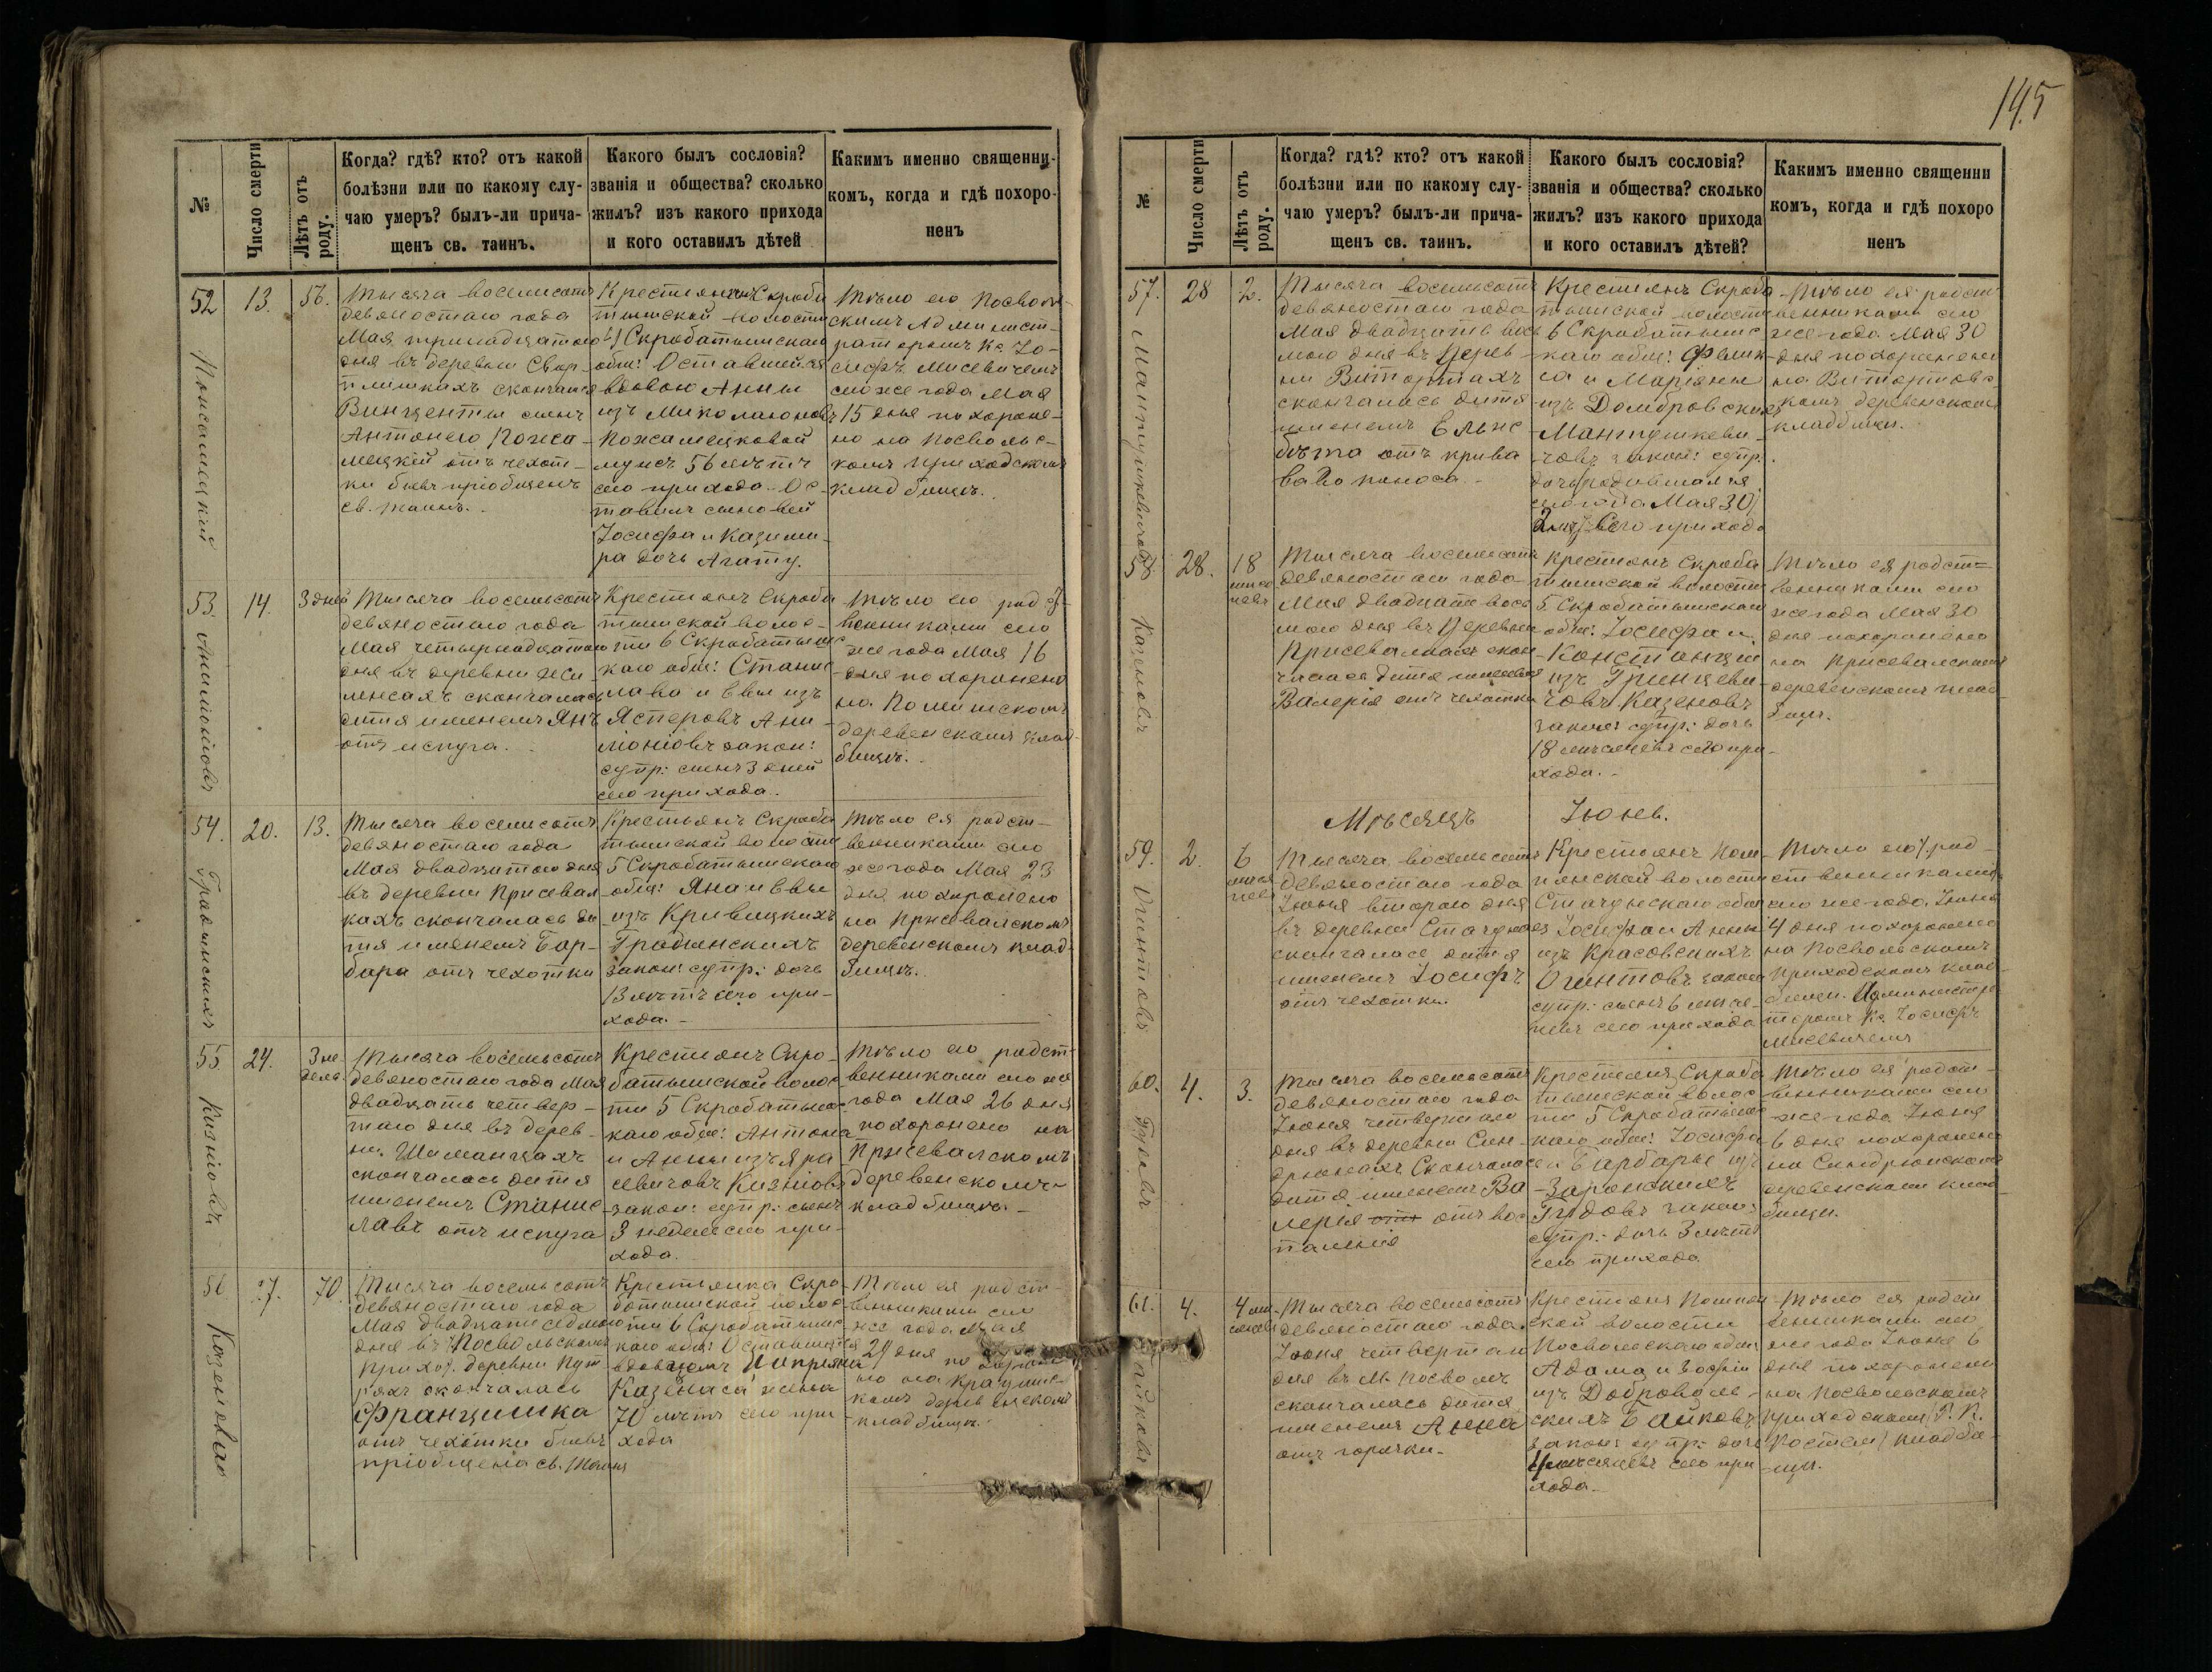 145
№
Число смерти
Лѣтъ отъ роду.
Когда? гдѣ? кто? отъ какой
болѣзни или по какому слу-
чаю умеръ? былъ-ли прича-
щенъ св. таинъ.
Какого былъ сословія?
званія и общества? сколько
жилъ? изъ какого прихода
и кого оставилъ дѣтей
Какимъ именно священни-
комъ, когда и гдѣ похоро-
ненъ
52
13.
56.
Тысяча восемьсотъ
девяностаго года
Мая тринадцатаго
дня въ деревни
скончался
Винцентій сынъ
Антонего
отъ чехот-
ки бывъ пріобщенъ
св. таинъ.
Крестьянинъ Скроба
тышской волости
Скробатышскаго
общ: Оставшейся
вдовою Анны
изъ Миколаюновъ
56 лѣтъ
сего прихода. Ос-
тавилъ сыновей
Іосифа и Казими-
ра дочь Агату.
Тѣло его Посволь-
скимъ Админист-
раторомъ Кс. Іо-
сифъ Мисевичемъ
сего же года Мая
15 дня похороне-
но на Посвольс-
комъ приходскомъ
кладбищѣ.
53
14.
3 дней
Тысяча восемьсотъ
девяностаго года
Мая четырнадцатаго
дня въ деревни
скончалась
дитя именемъ Янъ
отъ испуга.
Крестьянъ Скроба
тышской волос-
ти 6 Скробатышс
каго общ: Станис
лава и Евы изъ
Ястеровъ
закон:
супр: сынъ 3 дней
сего прихода.
Тѣло его родст-
венниками сего
же года Мая 16
дня похоронено
на
деревенскомъ клад-
бищѣ.
54.
20.
13.
Тысяча восемьсотъ
девяностаго года
Мая двадцатаго дня
въ деревни Присевал
кахъ скончалась ди
тя именемъ Бар-
бара отъ чехотки
Крестьянъ Скроба
тышской волости
5 Скробатышскаго
общ: Яна и Евы
изъ Кривицкихъ
закон: супр: дочь
13 лѣтъ сего при-
хода.-
Тѣло ея родст-
венниками сего
же года Мая 23
дня похоронено
на Присевалскомъ
деревенскомъ клад-
бищѣ.
55
24.
3 не
дель
Тысяча восемьсотъ
девяностаго года Мая
двадцать четвер-
таго дня въ дерев-
ни Шиманцахъ
скончалась дитя
именемъ Станис-
лавъ отъ испуга
Крестьянъ Скро-
батышской волос
ти 5 Скробатышс-
каго общ: Антона
и Анны изъ Яра
севичовъ Кизніовъ
закон: супр: сынъ
3 недель сего при-
хода.
Тѣло его родст-
венниками сего же
года Мая 26 дня
похоронено на
Присевалскомъ
деревенскомъ
кладбищѣ.-
Кизніовъ
56
27.
70.
Тысяча восемьсотъ
девяностаго года
Мая двадцати седьмого
дня въ Посвольскомъ
прихо. деревни
скончалась
Францишка
отъ чехотки бывъ
пріобщена св. Таинъ
Крестьянка Скро
батышской волос
ти 6 Скробатышс
каго общ: Оставшейся
вдовцомъ
Казенаса жена
70 лѣтъ сего при
хода
Тѣло ея родст-
венниками сего
же года Мая
29 дня похороне
но на
комъ деревенскомъ
кладбищѣ.
№
Число смерти
Лѣтъ отъ роду.
Когда? гдѣ? кто? отъ какой
болѣзни или по какому слу-
чаю умеръ? былъ-ли прича-
щенъ св. таинъ.
Какого былъ сословія?
званія и общества? сколько
жилъ? изъ какого прихода
и кого оставилъ дѣтей?
Какимъ именно священни
комъ, когда и гдѣ похоро
ненъ
57.
28
2.
Тысяча восемьсотъ
девяностаго года
Мая двадцать вось
мого дня въ Дерев-
ни Витортахъ
скончалась дитя
именемъ Ельжс
бѣта отъ крива
ваго поноса.
Крестьянъ Скроба
тышской волости
6 Скробатышс
каго общ: Фелик
са и Маріяны
изъ Домбровскихъ
Мантушкеви-
човъ закон: супр:
дочь родившаяся
сего года Мая 30
сего прихода
Тѣло ея родст
венниками сего
же года Мая 30
дня похоронено
на Витортовс
комъ деревенскомъ
кладбищи.
58
28.
18
мѣся
цевъ
Тысяча восемьсотъ
девяностаго года
Мая двадцать вось
мого дня въ Деревни
Присевалкахъ скон
чалась дитя именемъ
Валерія отъ чехотки
Крестьянъ Скроба
тышской волости
5 Скробатышскаго
общ: Іосифа и
Констанціи
изъ Гринцеви
човъ Казеновъ
закон: супр: дочь
18 мѣсяцевъ сего при-
хода.-
Тѣло ея родст=
венниками сего
же года Мая 30
дня похоронено
на Присевалскомъ
деревенскомъ клад-
бищѣ.
Казеновъ
Мѣсяцъ Іюнь.
59.
2.
6
мѣся
цевъ
Тысяча восемьсотъ
девяностаго года
Іюня втораго дня
въ деревни
скончалась дитя
именемъ Іосифъ
отъ чехотки.
Крестьянъ
волости
общ
Іосифа и Анны
изъ Красовскихъ
Огинтовъ закон
супр: сынъ 6 мѣся-
цевъ сего прихода
Тѣло его род-
ственниками
сего же года Іюня
4 дня похоронено
на Посвольскомъ
приходскомъ клад-
бищи. Администра
торомъ Кс. Іосифъ
Мисевичемъ
Огинтовъ
60.
4.
3.
Тысяча восемьсотъ
девяностаго года
Іюня четвертаго
дня въ деревни Син-
дрюнахъ Скончалась
дитя именемъ Ва
лерія отъ вос
паленія
Крестьянъ Скроба
тышской волос
ти 5 Скробатышс
каго общ: Іосифа
и Барбары изъ
закон:
супр: дочь 3 лѣтъ
сего прихода
Тѣло ея родст-
венниками сего
же года Іюня
6 дня похоронено
на Синдрюнскомъ
деревенскомъ клад
бищи.
61.
4.
4 мѣ
сяцевъ
Тысяча восемьсотъ
девяностаго года
Іюня четвертаго
дня въ М. Посволѣ
скончалась дитя
именемъ Анна
отъ горячки.
Крестьянъ
ской волости
Посвольскаго общ
Адама и Зофіи
изъ Доброволь-
скихъ Байковъ
закон: супр: дочь
4 мѣсяцевъ сего при
хода.-
Тѣло ея родст
венниками сего
же года Іюня 6
дня похоронено
на Посвольскомъ
приходскомъ Р. К.
Костела кладби-
щи.